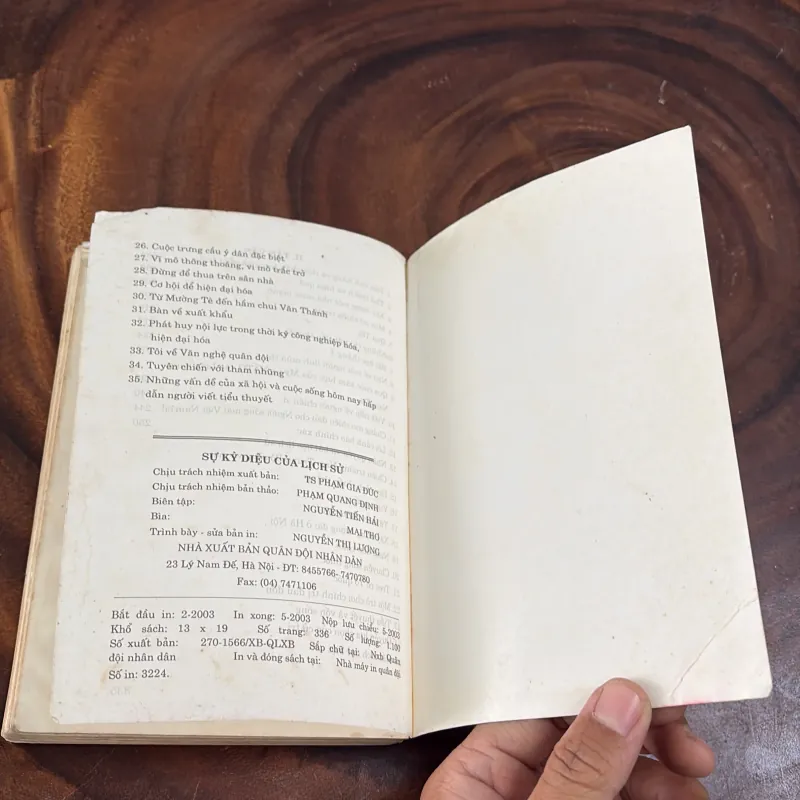 26. Cuộc trưng cầu ý dân đặc biệt
27. Vĩ mô thông thoáng, vi mô trắc trở
28. Đừng để thua trên sân nhà
29. Cơ hội để hiện đại hóa
30. Từ Mường Tè đến hầm chui Văn Thánh
31. Bàn về xuất khẩu
32. Phát huy nội lực trong thời kỳ công nghiệp hóa,
hiện đại hóa
33. Tôi về Văn nghệ quân đội
34. Tuyên chiến với tham nhũng
35. Những vấn đề của xã hội và cuộc sống hôm nay hấp
dẫn người viết tiểu thuyết
SỰ KỲ DIỆU CỦA LỊCH SỬ
Chịu trách nhiệm xuất bản: TS PHẠM GIA ĐỨC
Chịu trách nhiệm bản thảo: PHẠM QUANG ĐỊNH
Biên tập: NGUYỄN TIẾN HẢI
Bìa: MAI THƠ
Trình bày - sửa bản in: NGUYỄN THỊ LƯƠNG
NHÀ XUẤT BẢN QUÂN ĐỘI NHÂN DÂN
23 Lý Nam Đế, Hà Nội - ĐT: 8455766- 7470780
Fax: (04) 7471106
Bắt đầu in: 2-2003 In xong: 5-2003 Nộp lưu chiểu: 5-2003
Khổ sách: 13 x 19 Số trang: 336 Số lượng: 1.100
Số xuất bản: 270-1566/XB-QLXB Sắp chữ tại: Nxb Quân
đội nhân dân In và đóng sách tại: Nhà máy in quân đội
Số in: 3224.